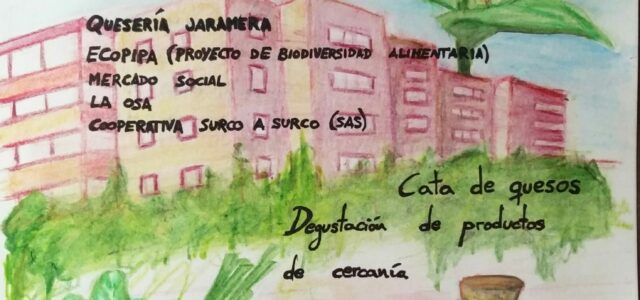 QUESERÍA JARAMERA
ECOPIPA (PROYECTO DE BIODIVERSIDAD ALIMENTARIA)
MERCADO SOCIAL
LA OSA
COOPERATIVA SURCO A SURCO (SAS)
Cata de quesos
Degustación de productos
de cercanía